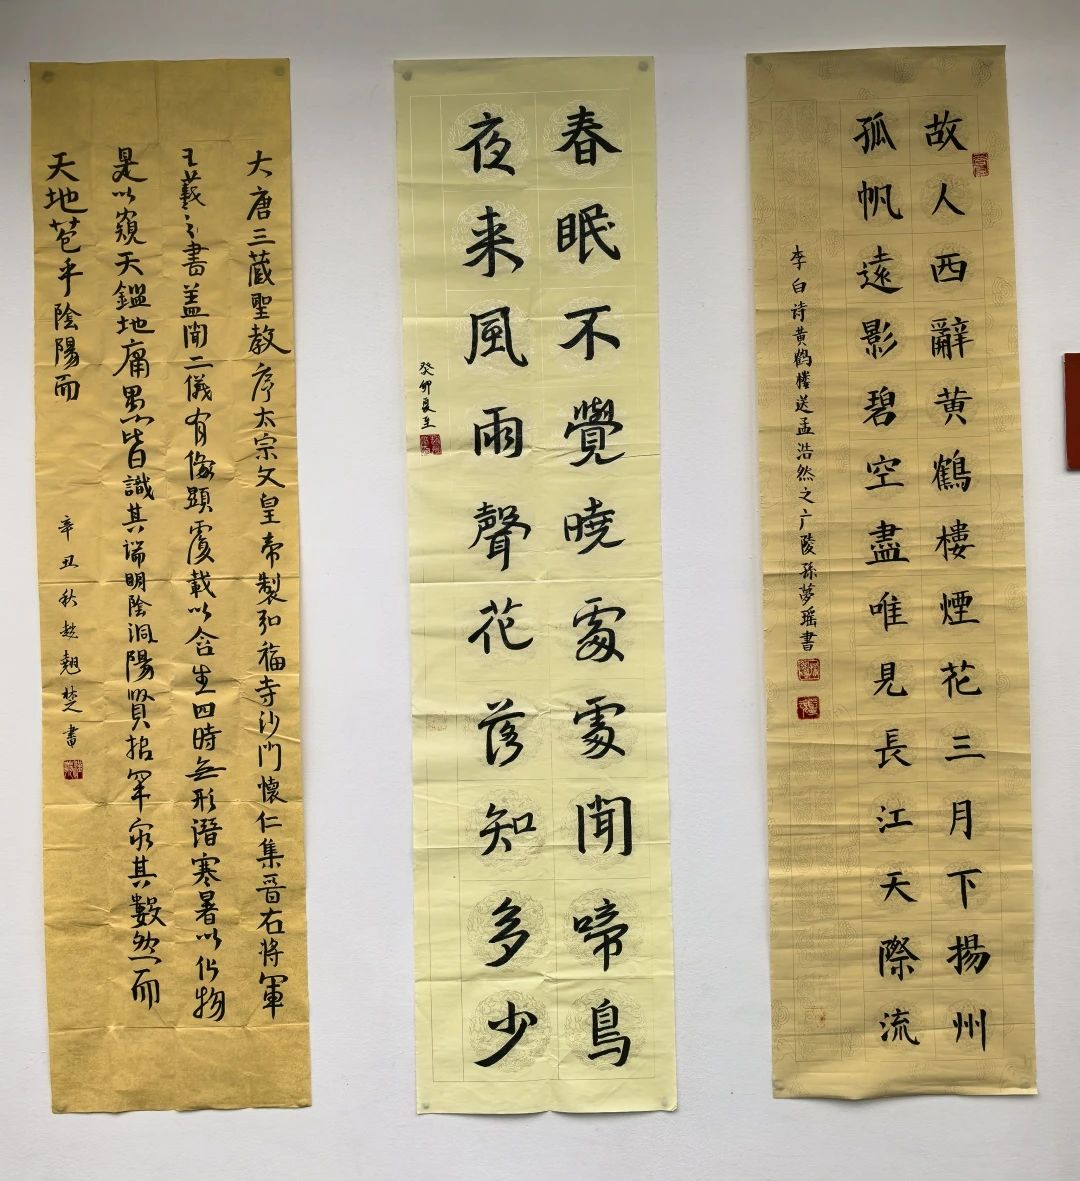 故人西辭黄鶴樓煙花三月下揚州
孤帆遠影碧空盡唯見長江天際流
李白诗黄鹤楼送孟浩然之广陵孫夢瑶書
春眠不覺曉處處聞啼鳥
夜来風雨聲花落知多少
癸卯夏至
大唐三藏聖教序太宗文皇帝製弘福寺沙門懷仁集晉右將軍
王羲之書蓋聞二儀有像顯覆載以含生四時無形潛寒暑以化物
是以窺天鑑地庸愚皆識其端明陰洞陽賢哲罕窮其數然而
天地苞乎陰陽而
辛丑秋趙翹楚書